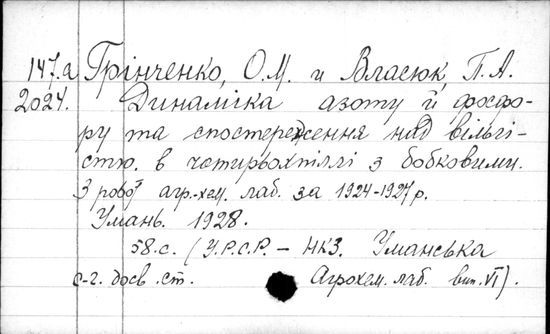 147.а Грінченко, О.М. и Власюк, П.А.
2024. Динаміка азоту й фосфо-
ру та спостереження над вільгі-
стю. в чотирьохпіллі з бобковими.
З робот агр.-хем. лаб. за 1924-1927 р.
Умань. 1928.
58.с. (У.Р.С.Р. – НКЗ. Уманська
с-г. досв. ст. Агрохем. лаб. вип. VI).